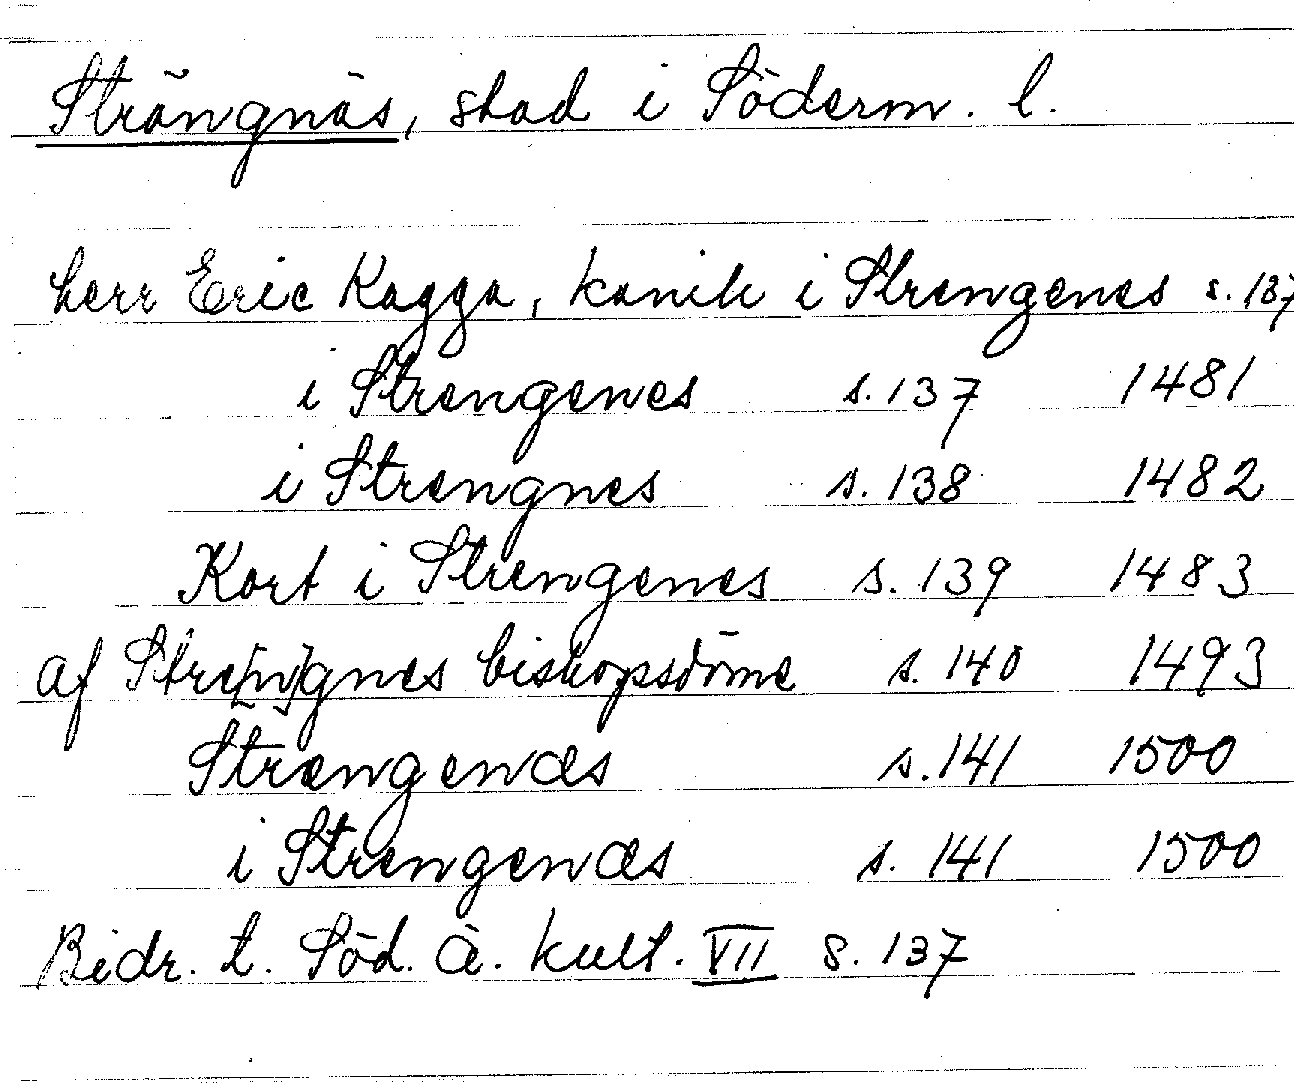 Strängnäs, stad i Söderm. l.
herr Eric Kagga, kanik i Strengenes s. 137
i Strengenes s. 137 1481
i Strengnes s. 138 1482
Kort i Strengenes s. 139 1483
af Stre[n]gnes biskopsdöme s. 140 1493
Strengenæs s. 141 1500
i Strengenæs s. 141 1500
Bidr. t. Söd. ä. kult. VII s. 137